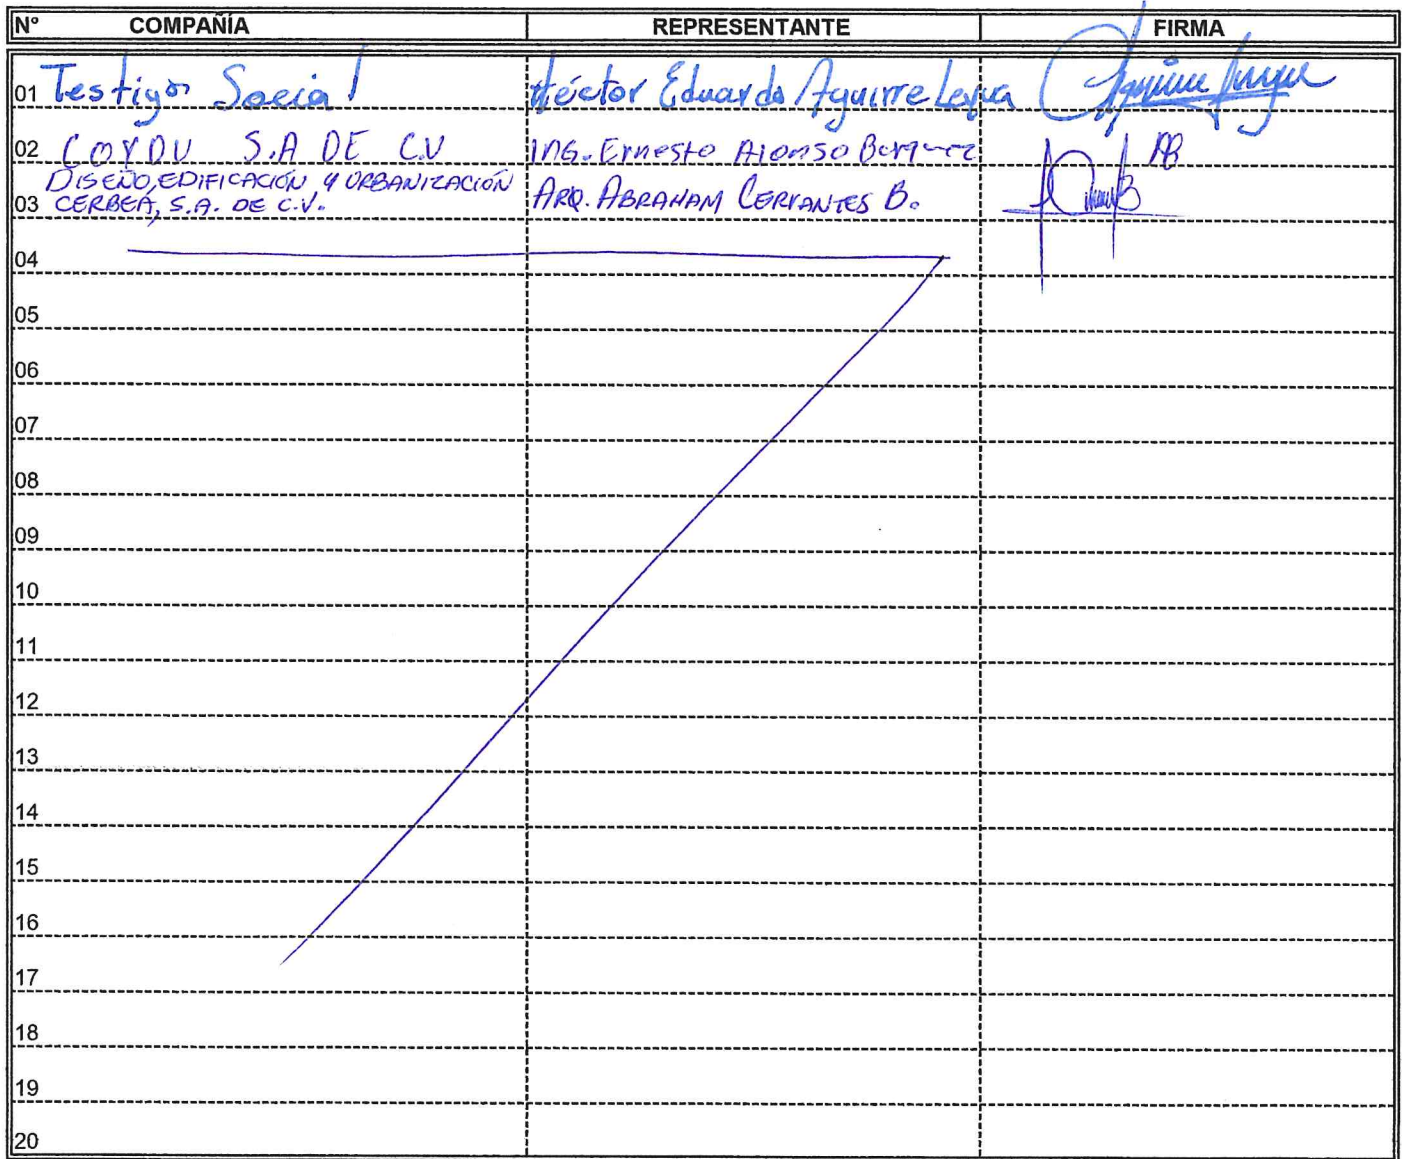 N° COMPAÑÍA REPRESENTANTE FIRMA
01 Testigo Social Héctor Eduardo Aguirre Leyva
02 COYDU S.A DE C.V ING. Ernesto Alonso
DISEÑO, EDIFICACIÓN, Y URBANIZACIÓN
03 CERBEA, S.A. DE C.V. ARQ. ABRAHAM CERVANTES B.
04
05
06
07
08
09
10
11
12
13
14
15
16
17
18
19
20